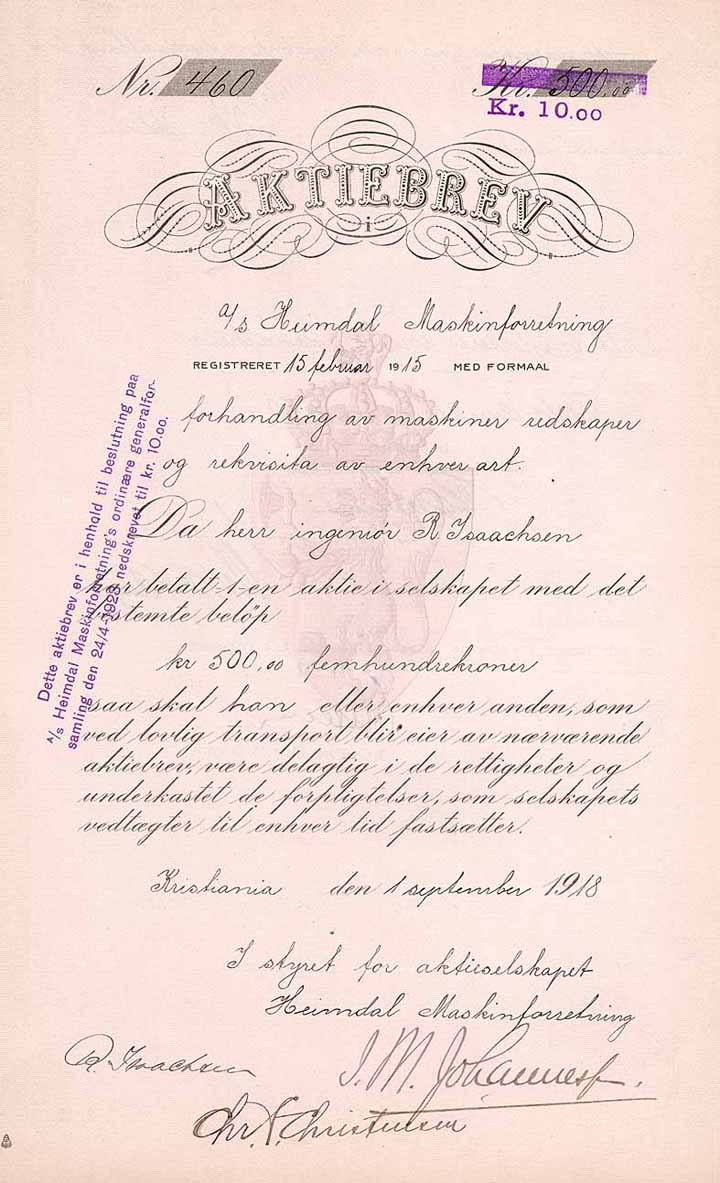 Nr. 460
Kr. 500,00
Kr. 10.00
AKTIEBREV
i
A/s Heimdal Maskinforretning
REGISTRERET 15 februar 1915 MED FORMAAL
forhandling av maskiner redskaper
og rekvisita av enhver art.
Da herr ingeniør R. Isaachsen
har betalt -1- en aktie i selskapet med det
bestemte beløp
kr 500,00 femhundrekroner
saa skal han eller enhver anden, som
ved lovlig transport blir eier av nærværende
aktiebrev, være delagtig i de rettigheter og
underkastet de forpligtelser, som selskapets
vedtægter til enhver tid fastsætter.
Kristiania den 1 september 1918
I styret for aktieselskapet
Heimdal Maskinforretning
R. Isaachsen
J. M. Johannes
Chr. F. Christensen
Dette aktiebrev er i henhold til beslutning paa
A/s Heimdal Maskinforretning's ordinære generalfor-
samling den 24/4-1928 nedskrevet til kr. 10.00.